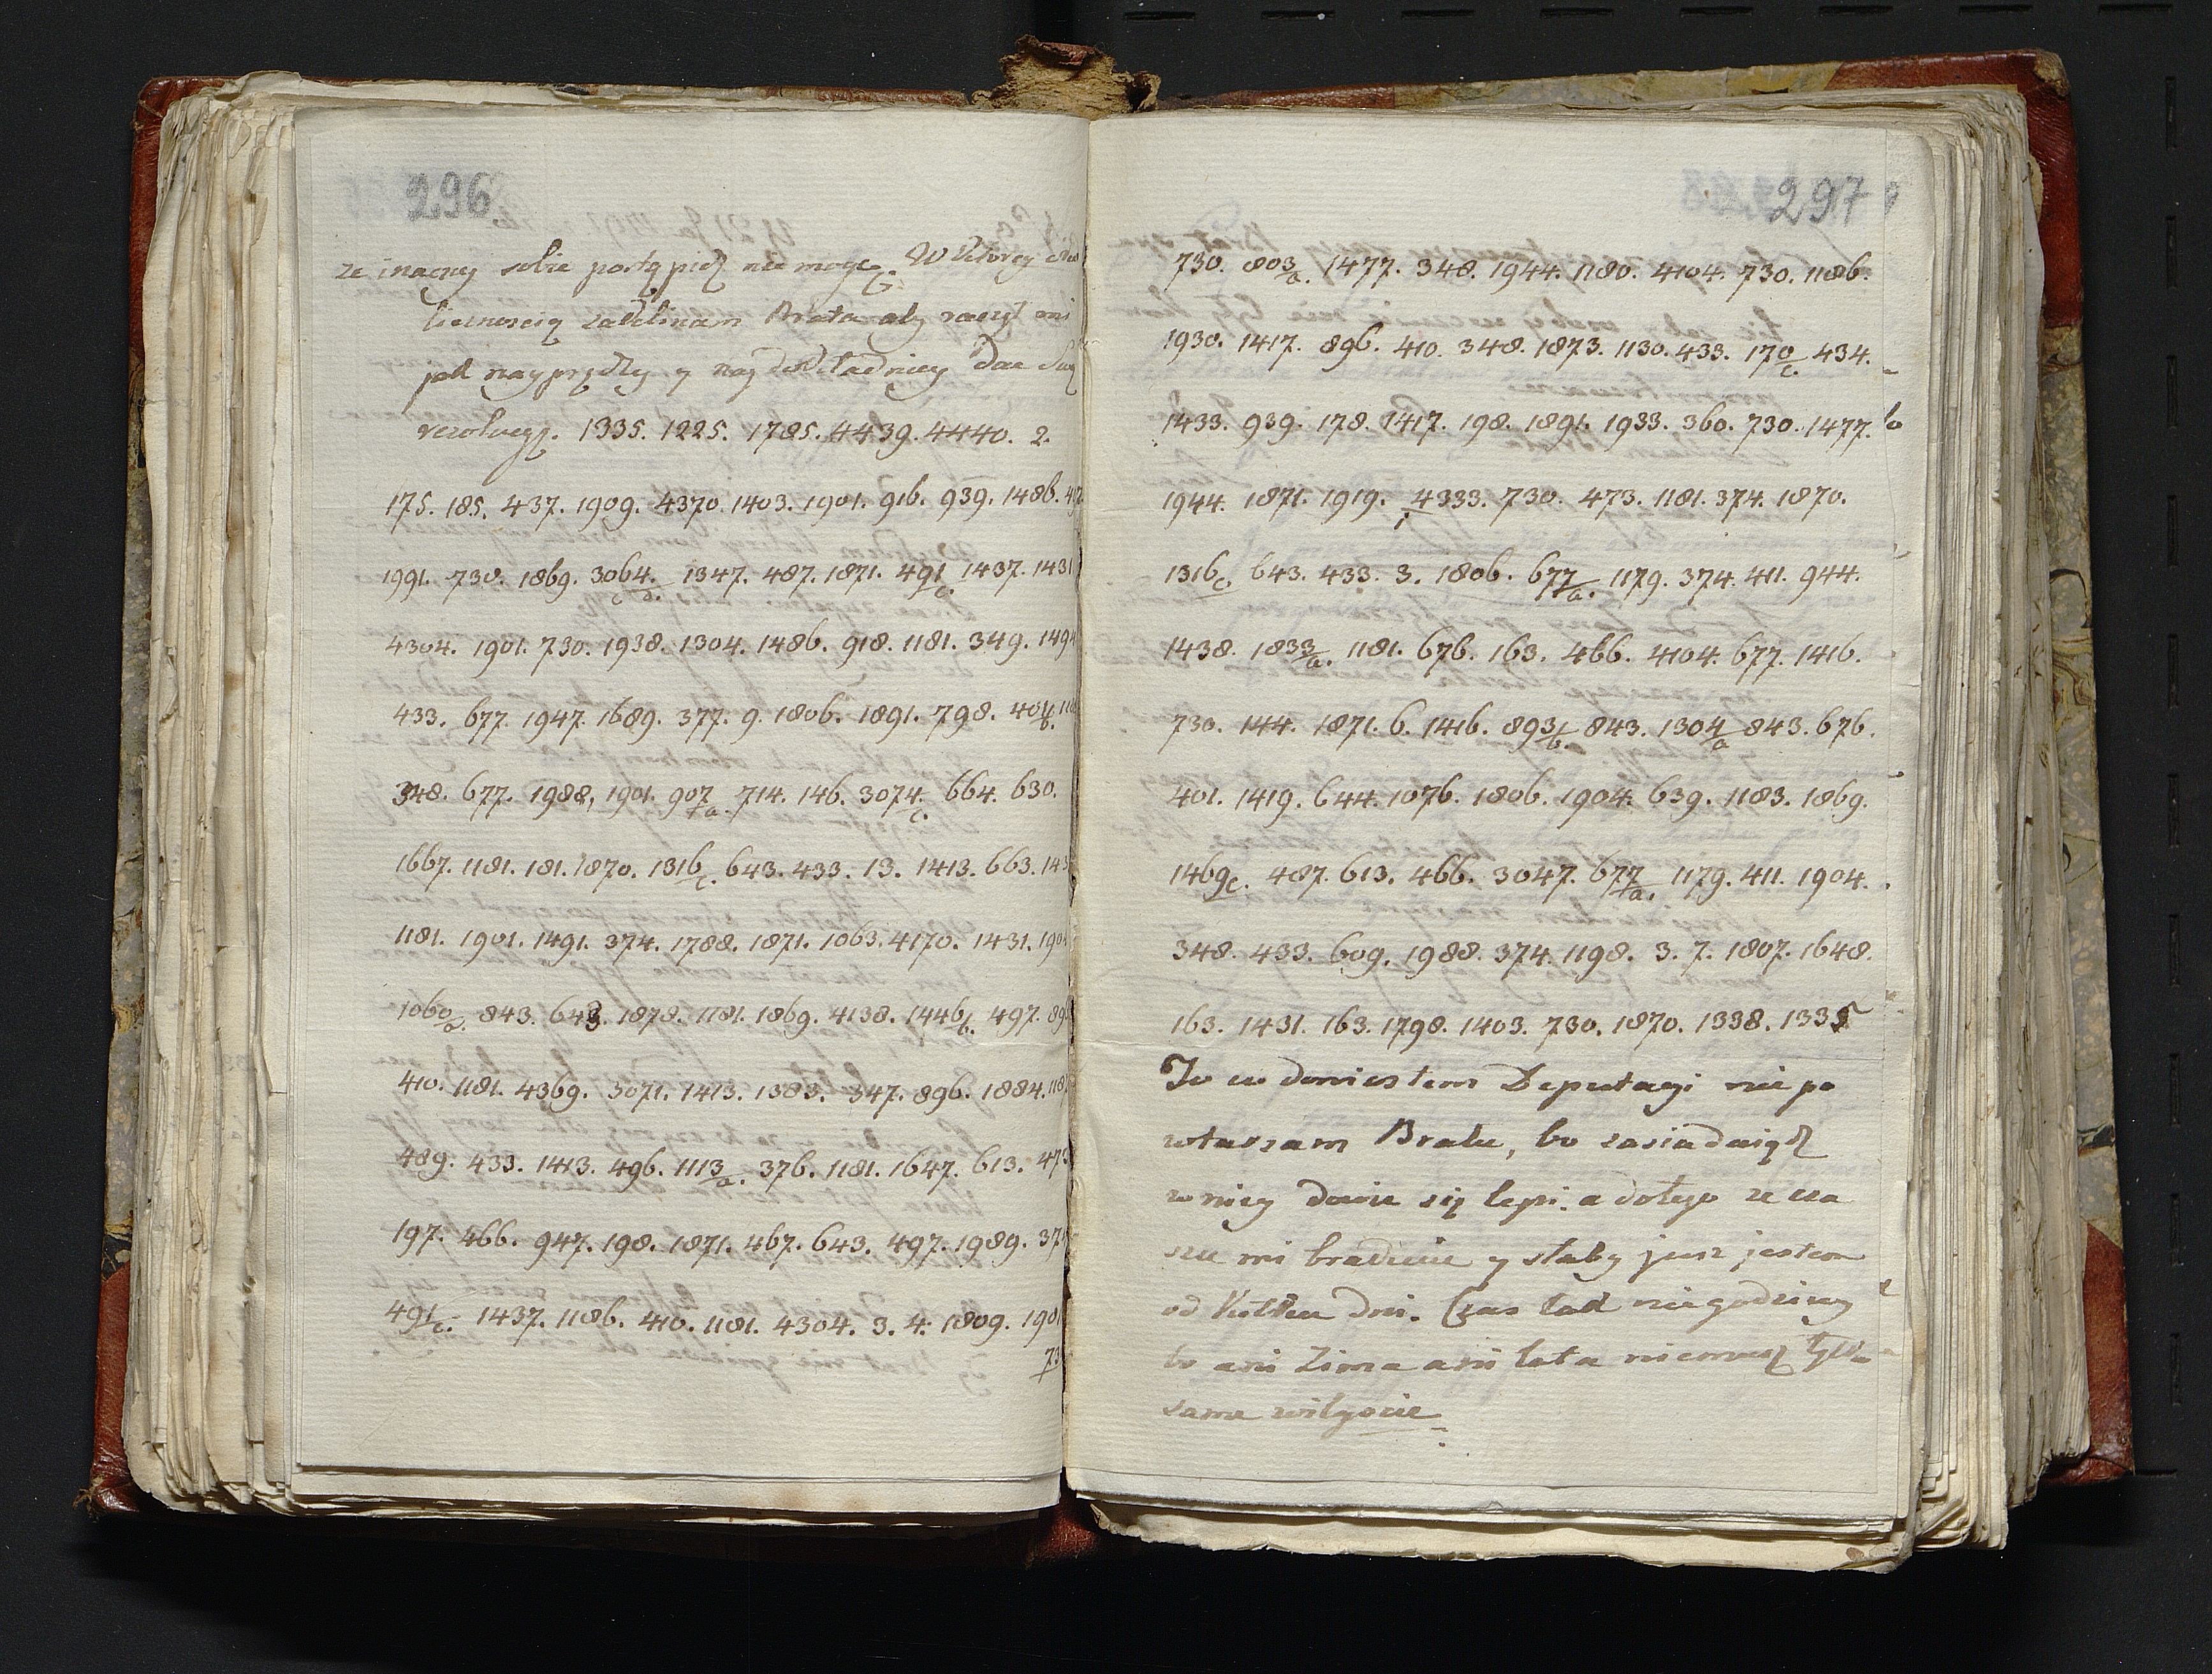 296
ze inaczey sobie postąpić nie mogę. W ktorey
licznoscią zaklinam Brata aby raczył mi
jak nayprędzey y naydokładniey dac Swą
rezolucyą. 1335. 1225. 1785. 4439. 4440. 2.
175. 185. 437. 1909. 4370. 1403. 1901. 916. 939. 1486.
1991. 730. 1869. 3064. c a. 1347. 487. 1871. 491 c. 1437. 1431
4304. 1901. 730. 1938. 1304. 1486. 918. 1181. 349. 149
433. 677. 1947. 1689. 377. 9. 1806. 1891. 798. 401 b.
348. 677. 1988, 1901. 907 a. 714. 146. 3074. c. 664. 630.
1667. 1181. 181. 1870. 1316 c. 643. 433. 13. 1413. 663. 143
1181. 1901. 1491. 374. 1788. 1871. 1063. 4170. 1431. 190
1060 a. 843. 643. 1878. 1181. 1869. 4138. 1446 b. 497. 89
410. 1181. 4369. 3071. 1413. 1383. 347. 896. 1884. 118
489. 433. 1413. 496. 1113 a. 376. 1181. 1647. 613. 473
197. 466. 947. 198. 1871. 467. 643. 497. 1989. 37
491 c. 1437. 1186. 410. 1181. 4304. 3. 4. 1809. 190
73
297
730. 803 a. 1477. 348. 1944. 1180. 4104. 730. 1186.
1930. 1417. 896. 410. 348. 1873. 1130. 433. 170 c. 434.
1433. 939. 178. 1417. 198. 1891. 1933. 360. 730. 1477.
1944. 1871. 1919. 4333. 730. 473. 1181. 374. 1870.
1316 c. 643. 433. 3. 1806. 677 a. 1179. 374. 411. 944.
1438. 1833 a. 1181. 676. 163. 466. 4104. 677. 1416.
730. 144. 1871. 6. 1416. 893 b. 843. 1304 a 843. 676.
401. 1419. 644. 1076. 1806. 1904. 639. 1183. 1869.
1469 c. 487. 613. 466. 3047. 677 a. 1179. 411. 1904.
348. 433. 609. 1988. 374. 1198. 3. 7. 1807. 1648.
163. 1431. 163. 1798. 1403. 730. 1870. 1338. 1335
To co doniosłem Deputacyi nie po
wtarzam Bratu, bo zasiadaiąc
w niey dowie się lepi. a dotego ze cza
su mi braknie y słaby jusz jestem
od kilku dni. Czas tak niegodziwy
bo ani Zima ani lata niemasz tylko
same wilgocie